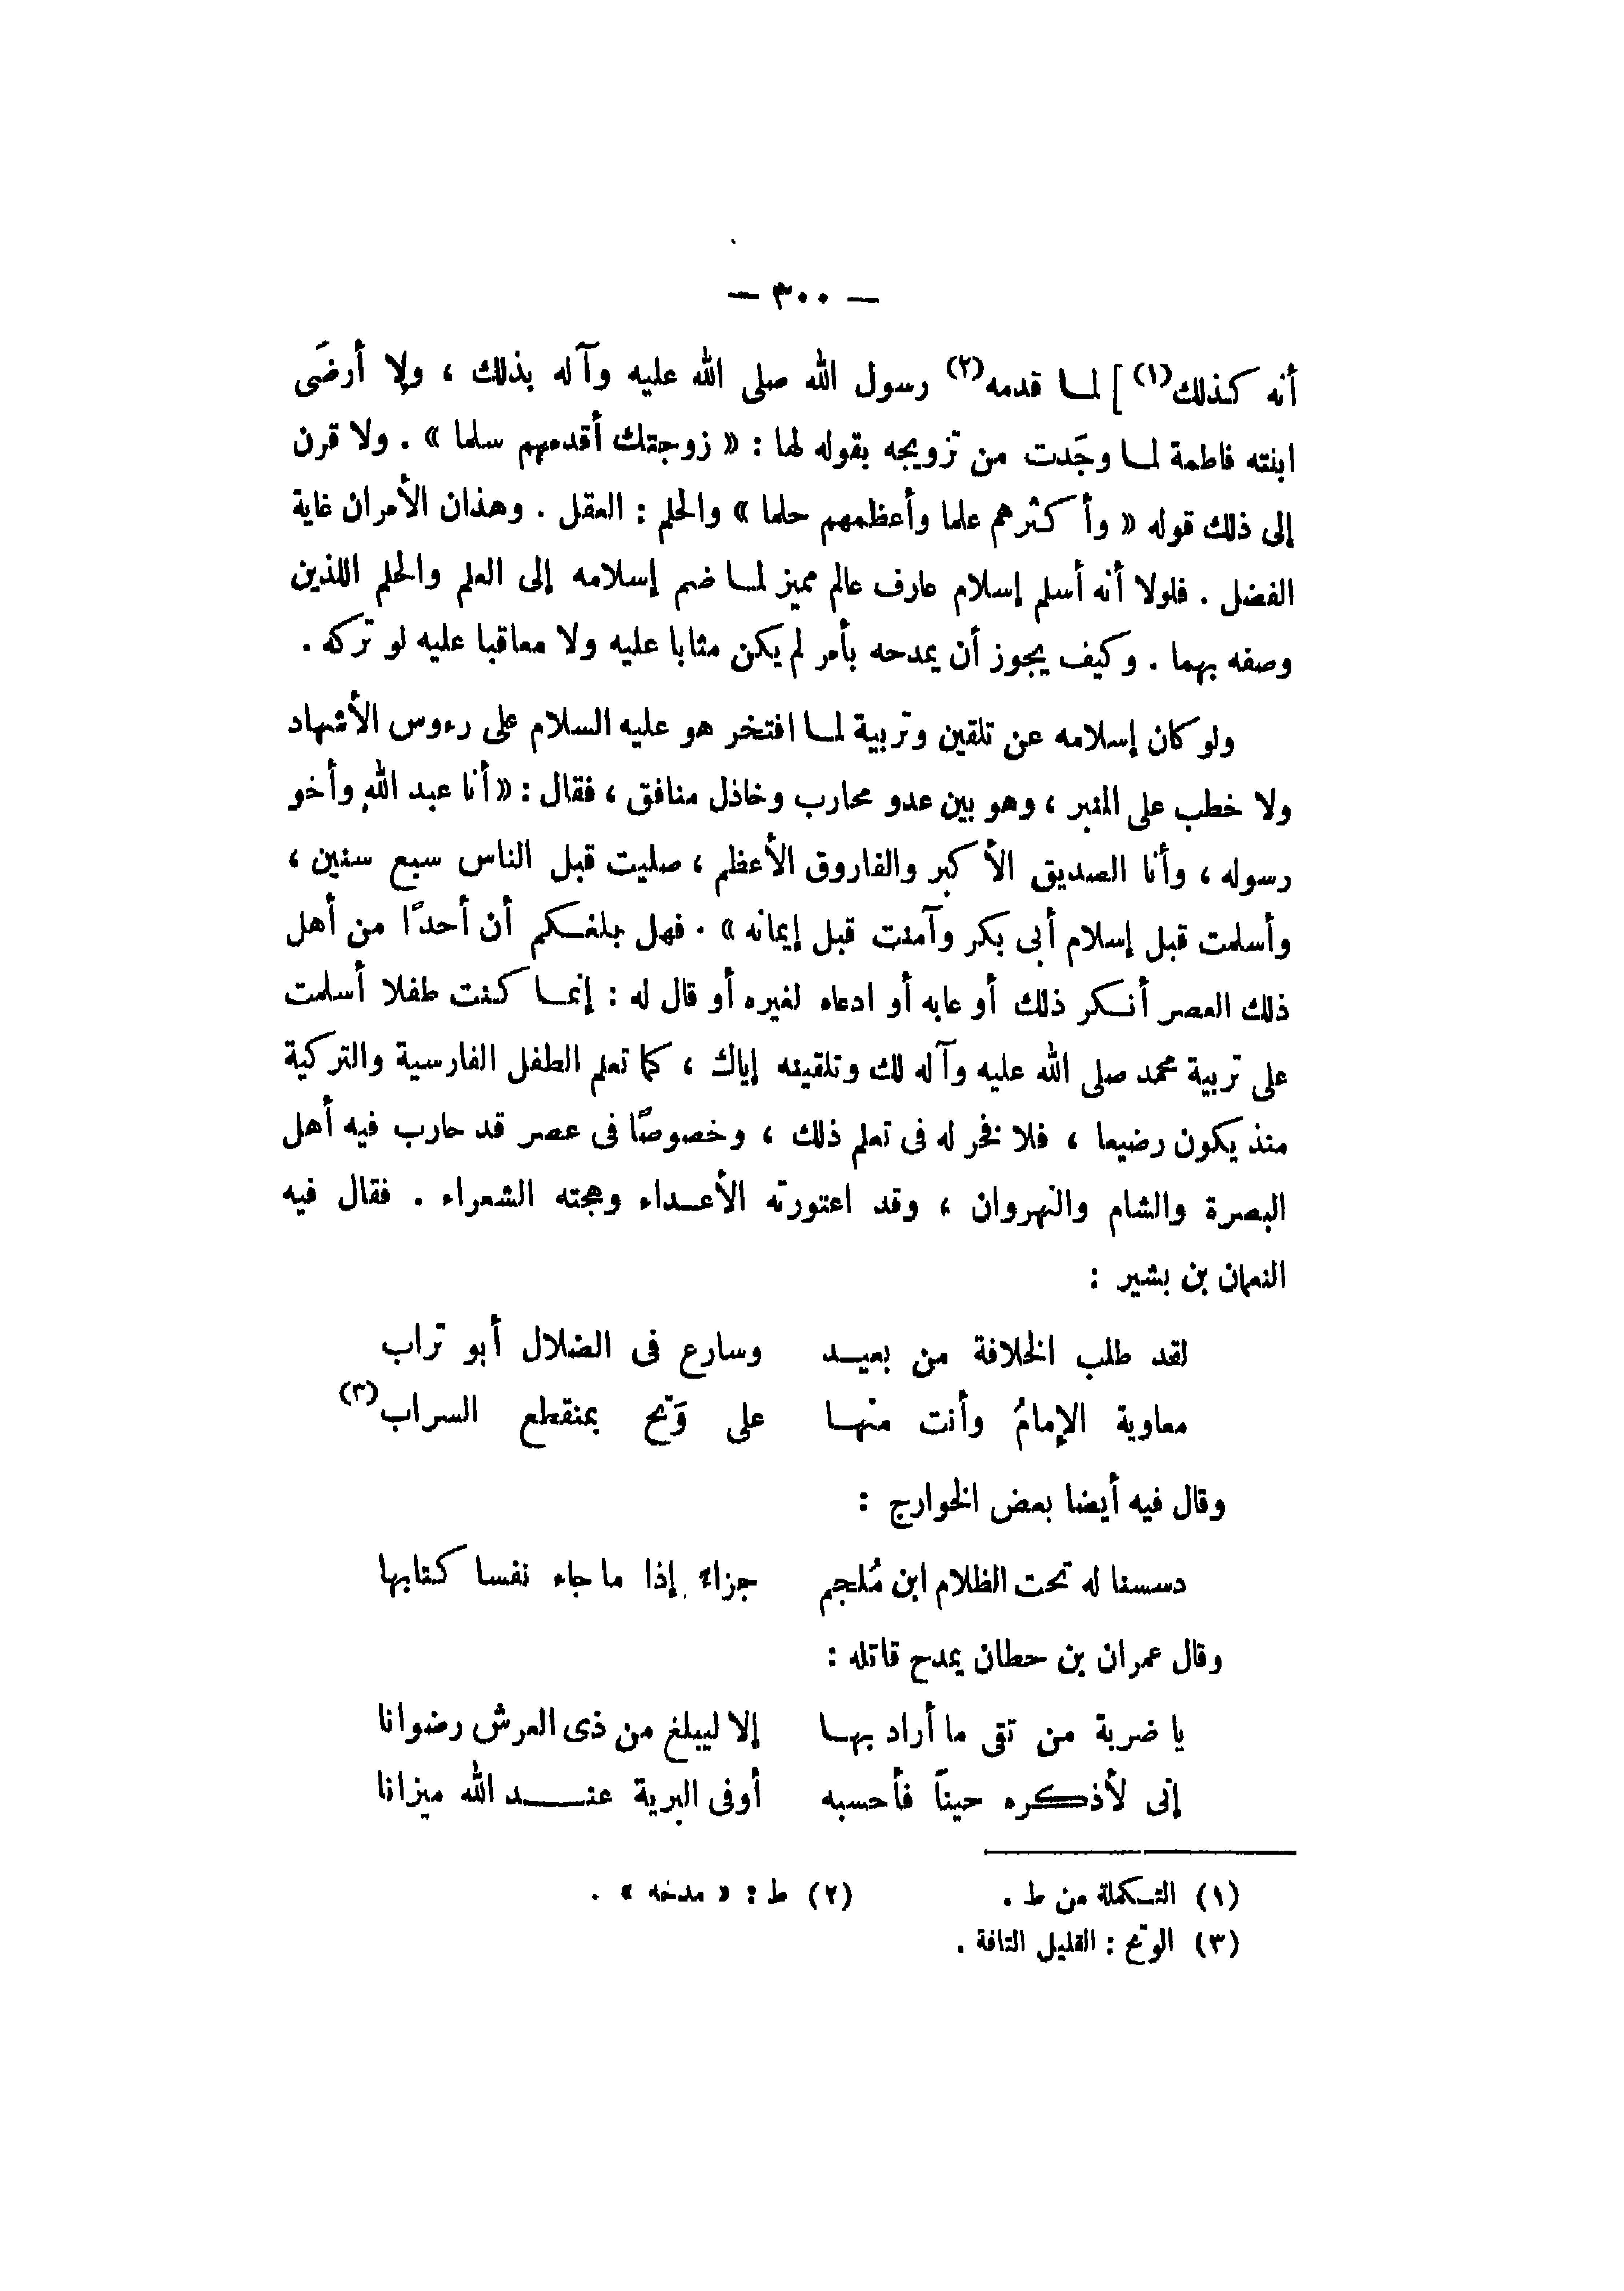 — ٣٠٠ —
أنه كذلك(١)] لمـا قدمه(٢) رسول الله صلى الله عليه وآله بذلك ، ولا أرضَى
ابنته فاطمة لمـا وجَدت من تزويجه بقوله لها : « زوجتك أقدمهم سلما » . ولا قرن
إلى ذلك قوله « وأكثرهم علما وأعظمهم حلما » والحلم : العقل . وهذان الأمران غاية
الفضل . فلولا أنه أسلم إسلام عارف عالم مميز لمـا ضم إسلامه إلى العلم والحلم اللذين
وصفه بهما . وكيف يجوز أن يمدحه بأمر لم يكن مثابا عليه ولا معاقبا عليه لو تركه .
ولو كان إسلامه عن تلقين وتربية لمـا افتخر هو عليه السلام على رءوس الأشهاد
ولا خطب على المنبر ، وهو بين عدو محارب وخاذل منافق ، فقال : « أنا عبد اللهِ وأخو
رسوله ، وأنا الصديق الأكبر والفاروق الأعظم ، صليت قبل الناس سبع سنين ،
وأسلمت قبل إسلام أبى بكر وآمنت قبل إيمانه » . فهل بلغـكم أن أحدًا من أهل
ذلك العصر أنـكر ذلك أو عابه أو ادعاه لغيره أو قال له : إنمـا كنت طفلا أسلمت
على تربية محمد صلى الله عليه وآله لك وتلقينه إياك ، كما تعلم الطفل الفارسية والتركية
منذ يكون رضيعا ، فلا فخر له فى تعلم ذلك ، وخصوصًا فى عصر قد حارب فيه أهل
البصرة والشام والنهروان ، وقد اعتورته الأعـداء وهجته الشعراء . فقال فيه
النعمان بن بشير :
لقد طلب الخلافة من بعيـد وسارع فى الضلال أبو تراب
معاوية الإمامُ وأنت منهـا على وَتح بمنقطع السراب(٣)
وقال فيه أيضا بعض الخوارج :
دسسنا له تحت الظلام ابن مُلجم جزاءً إذا ما جاء نفسا كتابها
وقال عمران بن حطان يمدح قاتله :
يا ضربة من تقى ما أراد بهـا إلا ليبلغ من ذى العرش رضوانا
إنى لأذكره حيناً فأحسبه أوفى البرية عنـــد الله ميزانا
(١) التـكملة من ط . (٢) ط : « مدخه » .
(٣) الوتح : القليل التافة .